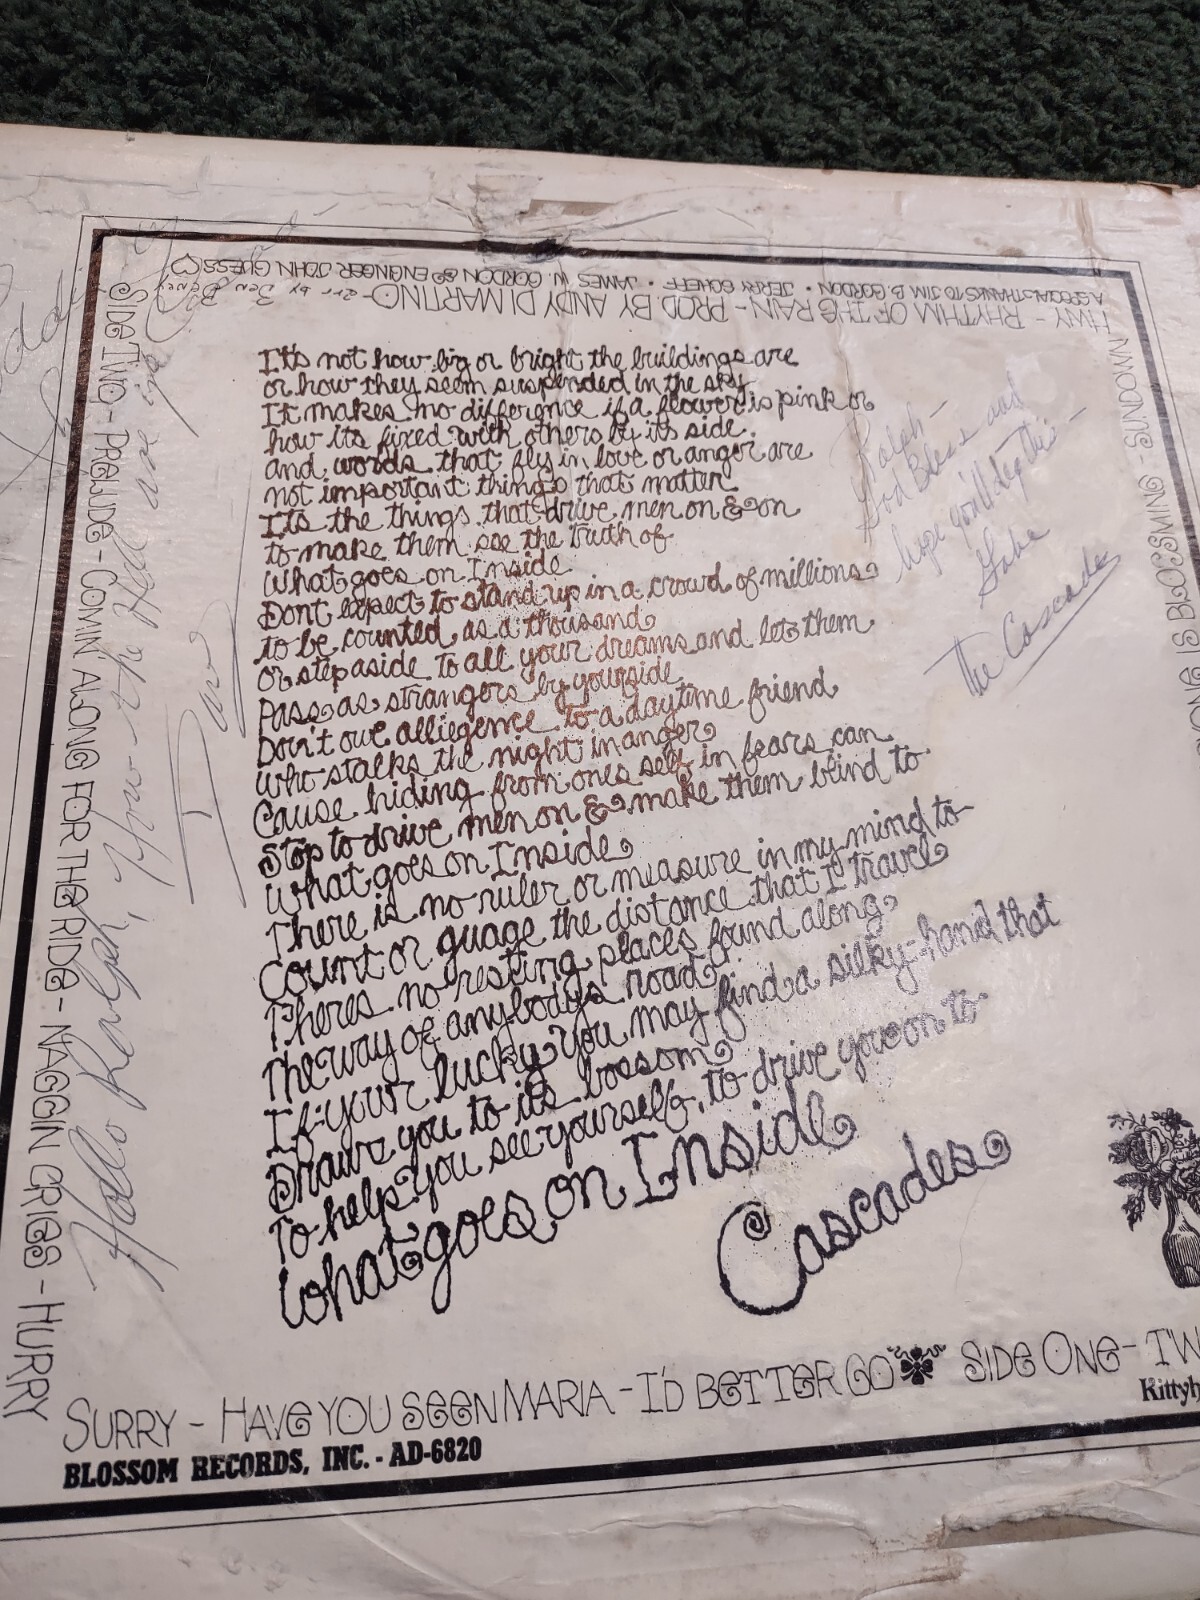 A SPECIAL THANKS TO JIM B. GORDON • JERRY SCHEFF • JAMES W. GORDON & ENGINEER JOHN GUESS
HWY - RHYTHM OF THE RAIN - PROD BY ANDY DI MARTINO - arr by Ben Benay
It's not how big or bright the buildings are
or how they seem suspended in the sky
It makes no difference if a flower is pink or
how its fixed with others by its side.
and words that fly in love or anger are
not important things that matter
Its the things that drive men on & on
to make them see the truth of
What goes on Inside
Dont expect to stand up in a crowd of millions
to be counted as a thousand
or step aside to all your dreams and let them
Pass as strangers by yourside
Don't owe alliegence to a daytime friend
who stalks the night in anger
Cause hiding from ones self in fears can
Stop to drive men on & make them blind to
What goes on Inside
There is no ruler or measure in my mind to
Count or guage the distance that I travel
Theres no resting places found along
The way of anybodys road
If your lucky you may find a silky-hand that
Draws you to its bossom
To help you see yourself, to drive you on to
What goes on Inside
Cascades
Ralph -
God Bless and
hope you'll dig this -
Gabe
The Cascades
Hello Ralph, How the Hell are
Dave
SIDE TWO - PRELUDE - COMIN' ALONG FOR THE RIDE - NAGGIN CRIES - HURRY
SUNDOWN
IS BLOSSMING -
SURRY - HAVE YOU SEEN MARIA - I'D BETTER GO
SIDE ONE -
BLOSSOM RECORDS, INC. - AD-6820